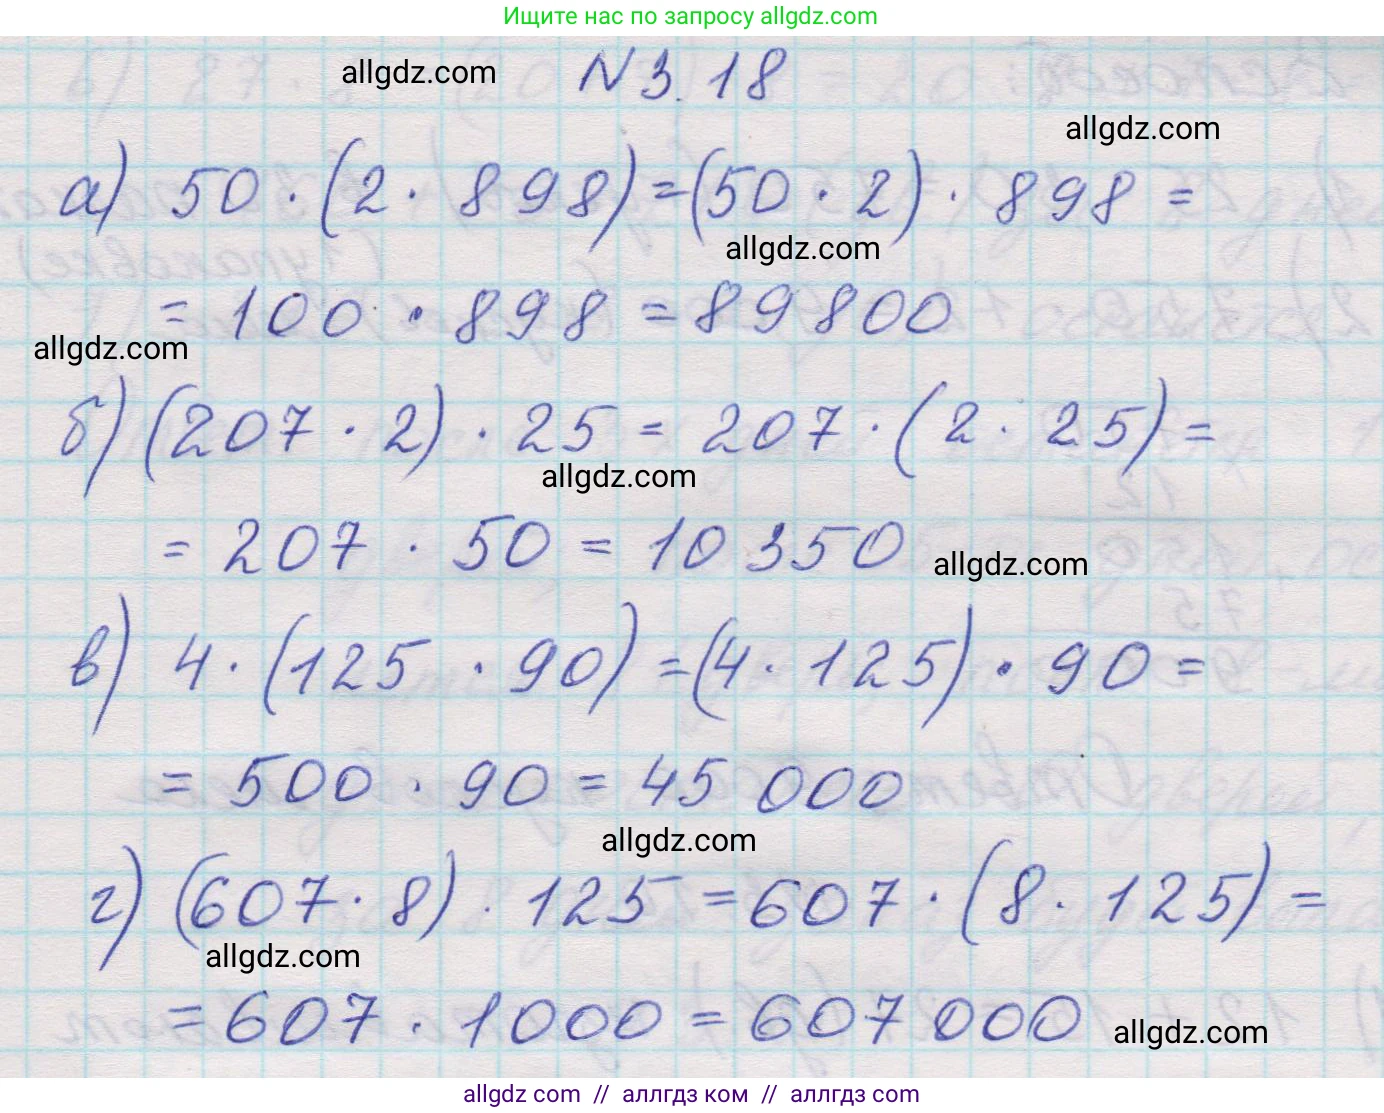 Ищите нас по запросу allgdz.com
allgdz.com
N 3.18
allgdz.com
а) 50 · (2 · 898) = (50 · 2) · 898 =
allgdz.com
= 100 · 898 = 89800
allgdz.com
б) (207 · 2) · 25 = 207 · (2 · 25) =
allgdz.com
= 207 · 50 = 10350
allgdz.com
в) 4 · (125 · 90) = (4 · 125) · 90 =
= 500 · 90 = 45 000
allgdz.com
г) (607 · 8) · 125 = 607 · (8 · 125) =
allgdz.com
= 607 · 1000 = 607 000
allgdz.com
allgdz com // аллгдз ком // allgdz com